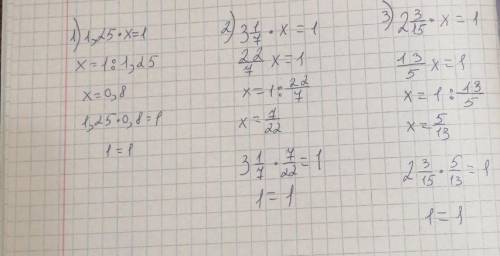 1) 1,25 · x = 1
x = 1 : 1,25
x = 0,8
1,25 · 0,8 = 1
1 = 1
2) 3 1/7 · x = 1
22/7 x = 1
x = 1 : 22/7
x = 7/22
3 1/7 · 7/22 = 1
1 = 1
3) 2 3/15 · x = 1
13/5 x = 1
x = 1 : 13/5
x = 5/13
2 3/15 · 5/13 = 1
1 = 1